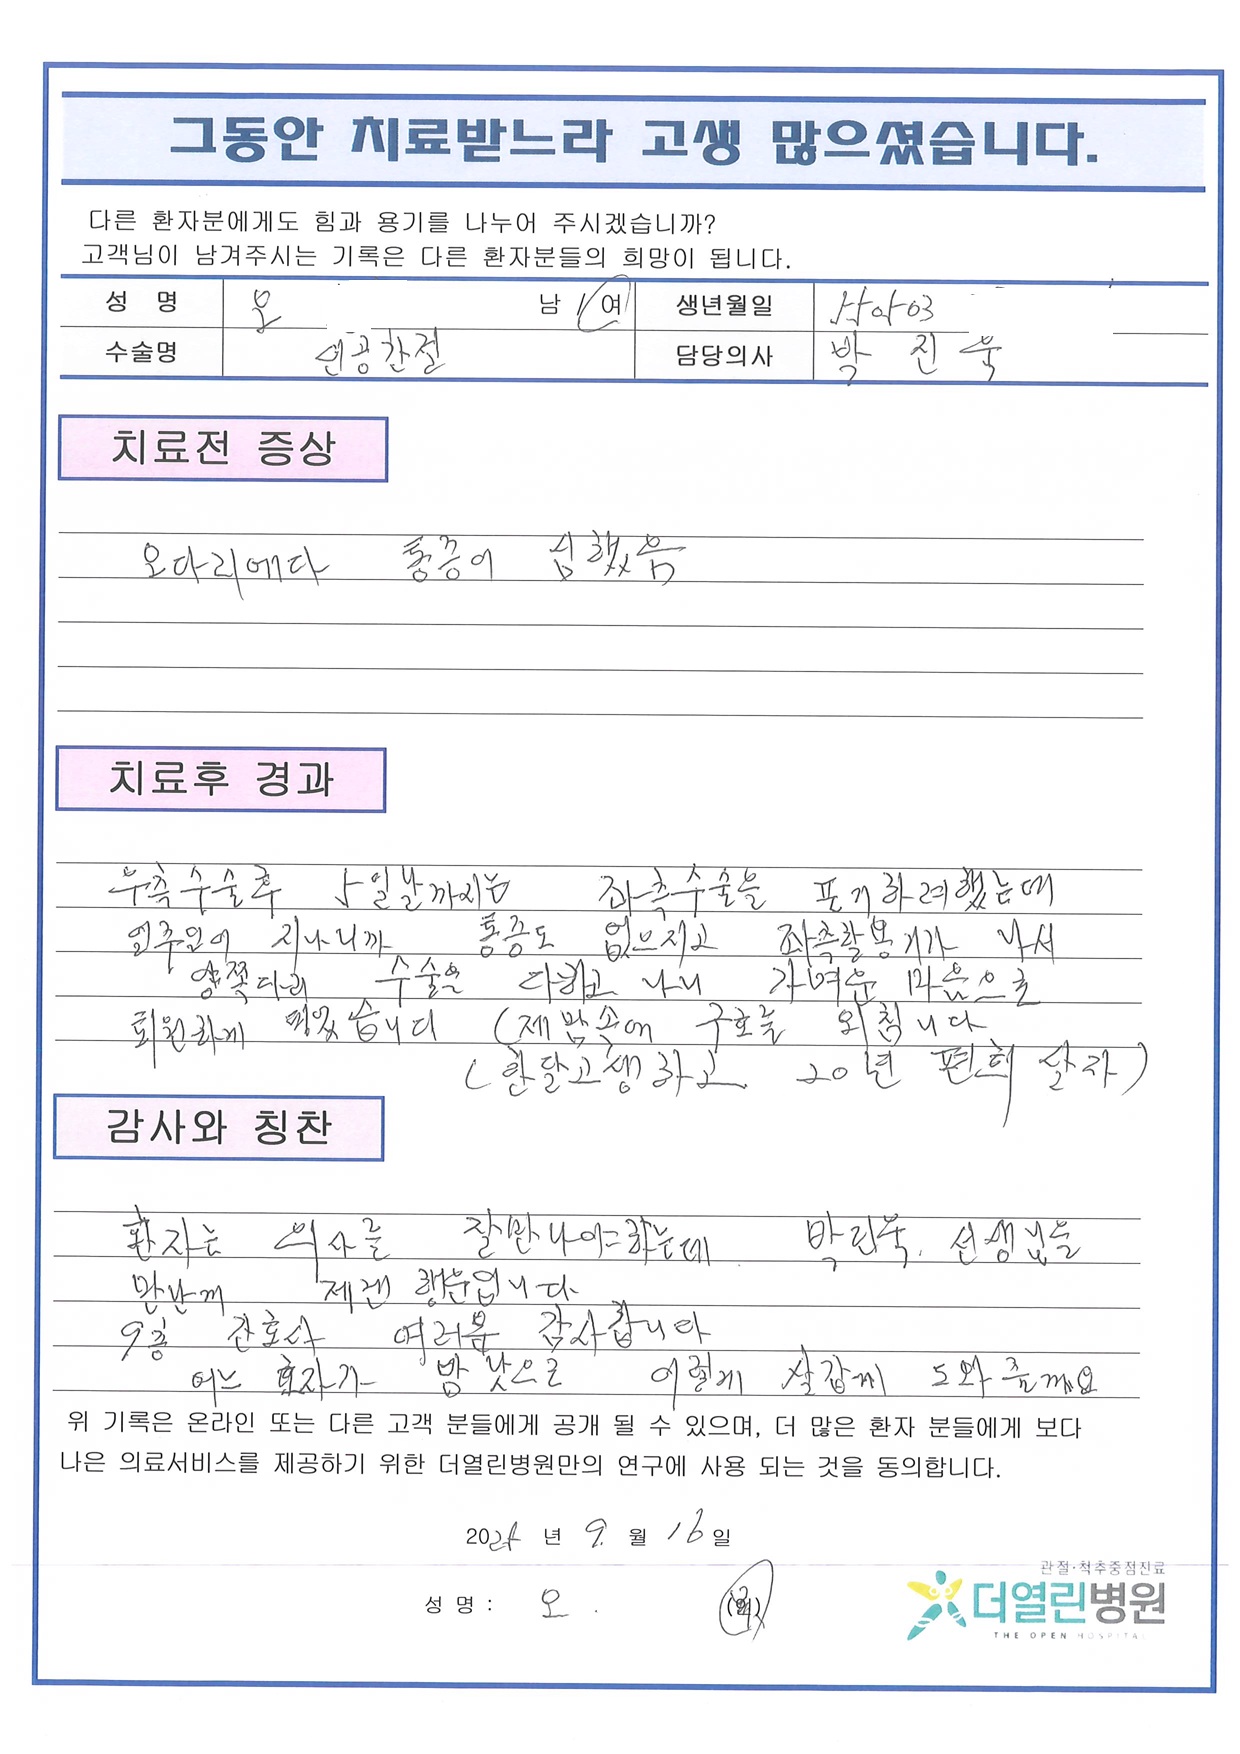 그동안 치료받느라 고생 많으셨습니다.
다른 환자분에게도 힘과 용기를 나누어 주시겠습니까?
고객님이 남겨주시는 기록은 다른 환자분들의 희망이 됩니다.
성 명 오 남 / 여 생년월일
수술명 인공간절 담당의사 박 진 욱
치료전 증상
오다리에다 통증이 심했음
치료후 경과
우측수술후 5일날까지는 좌측수술을 포기하려했는데
일주일이 지나니까 통증도 없으지고 좌측할용기가 나서
양쪽다리 수술을 다하고 나니 가벼운 마음으로
퇴원하게 되었습니다 (제 맘속에 구호를 외침니다
(한달고생하고 20년 편희 살자)
감사와 칭찬
환자는 의사를 잘만나야하는데 박진욱. 선생님을
만난게 제겐 행운입니다
9층 간호사 여러분 감사합니다
어느 효자가 밤 낮으로 이렇게 살갑게 도와줄까요
위 기록은 온라인 또는 다른 고객 분들에게 공개 될 수 있으며, 더 많은 환자 분들에게 보다
나은 의료서비스를 제공하기 위한 더열린병원만의 연구에 사용 되는 것을 동의합니다.
년 9. 월 16 일
관절·척추중점진료
성 명 : 오 . (인)
더열린병원
THE OPEN HOSPITAL